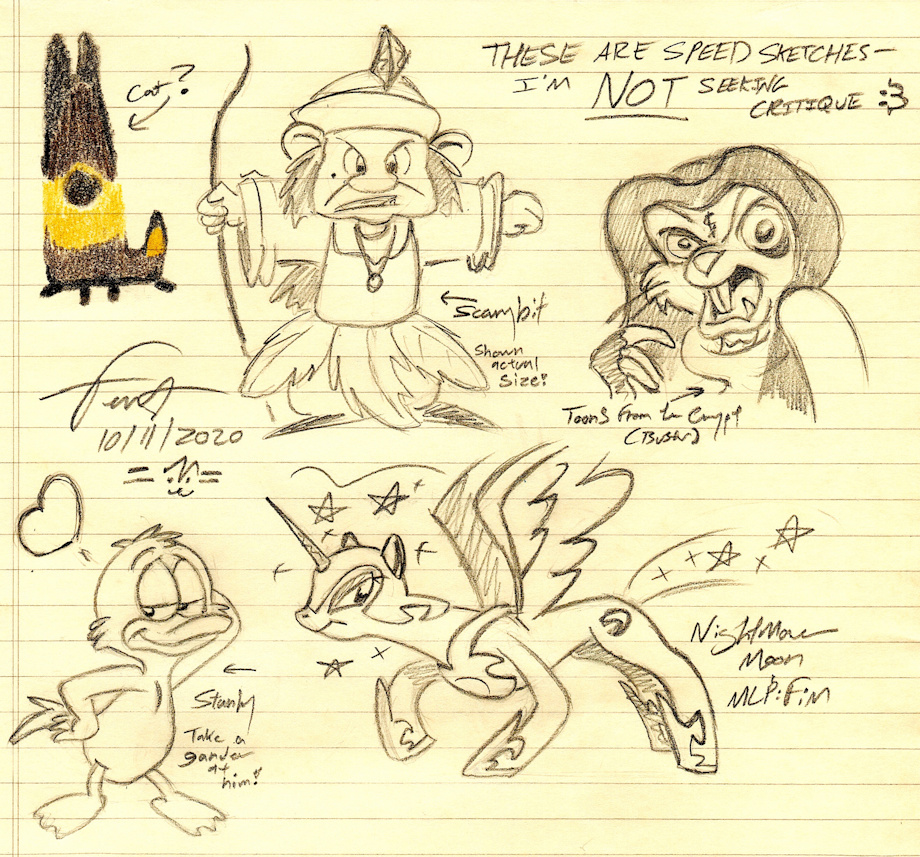 THESE ARE SPEED SKETCHES—
I'M NOT SEEKING
CRITIQUE :3
Cat?
Scambit
Shown
actual
size!
Toons From the Crypt
(Buster)
10/11/2020
Stanly
Take a
gander
at
him!
NightMare
Moon
MLP:FiM